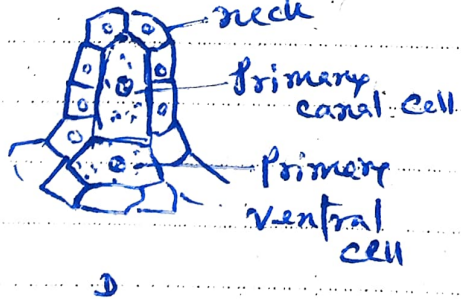 neck
Primary
canal cell
Primary
ventral
cell
D